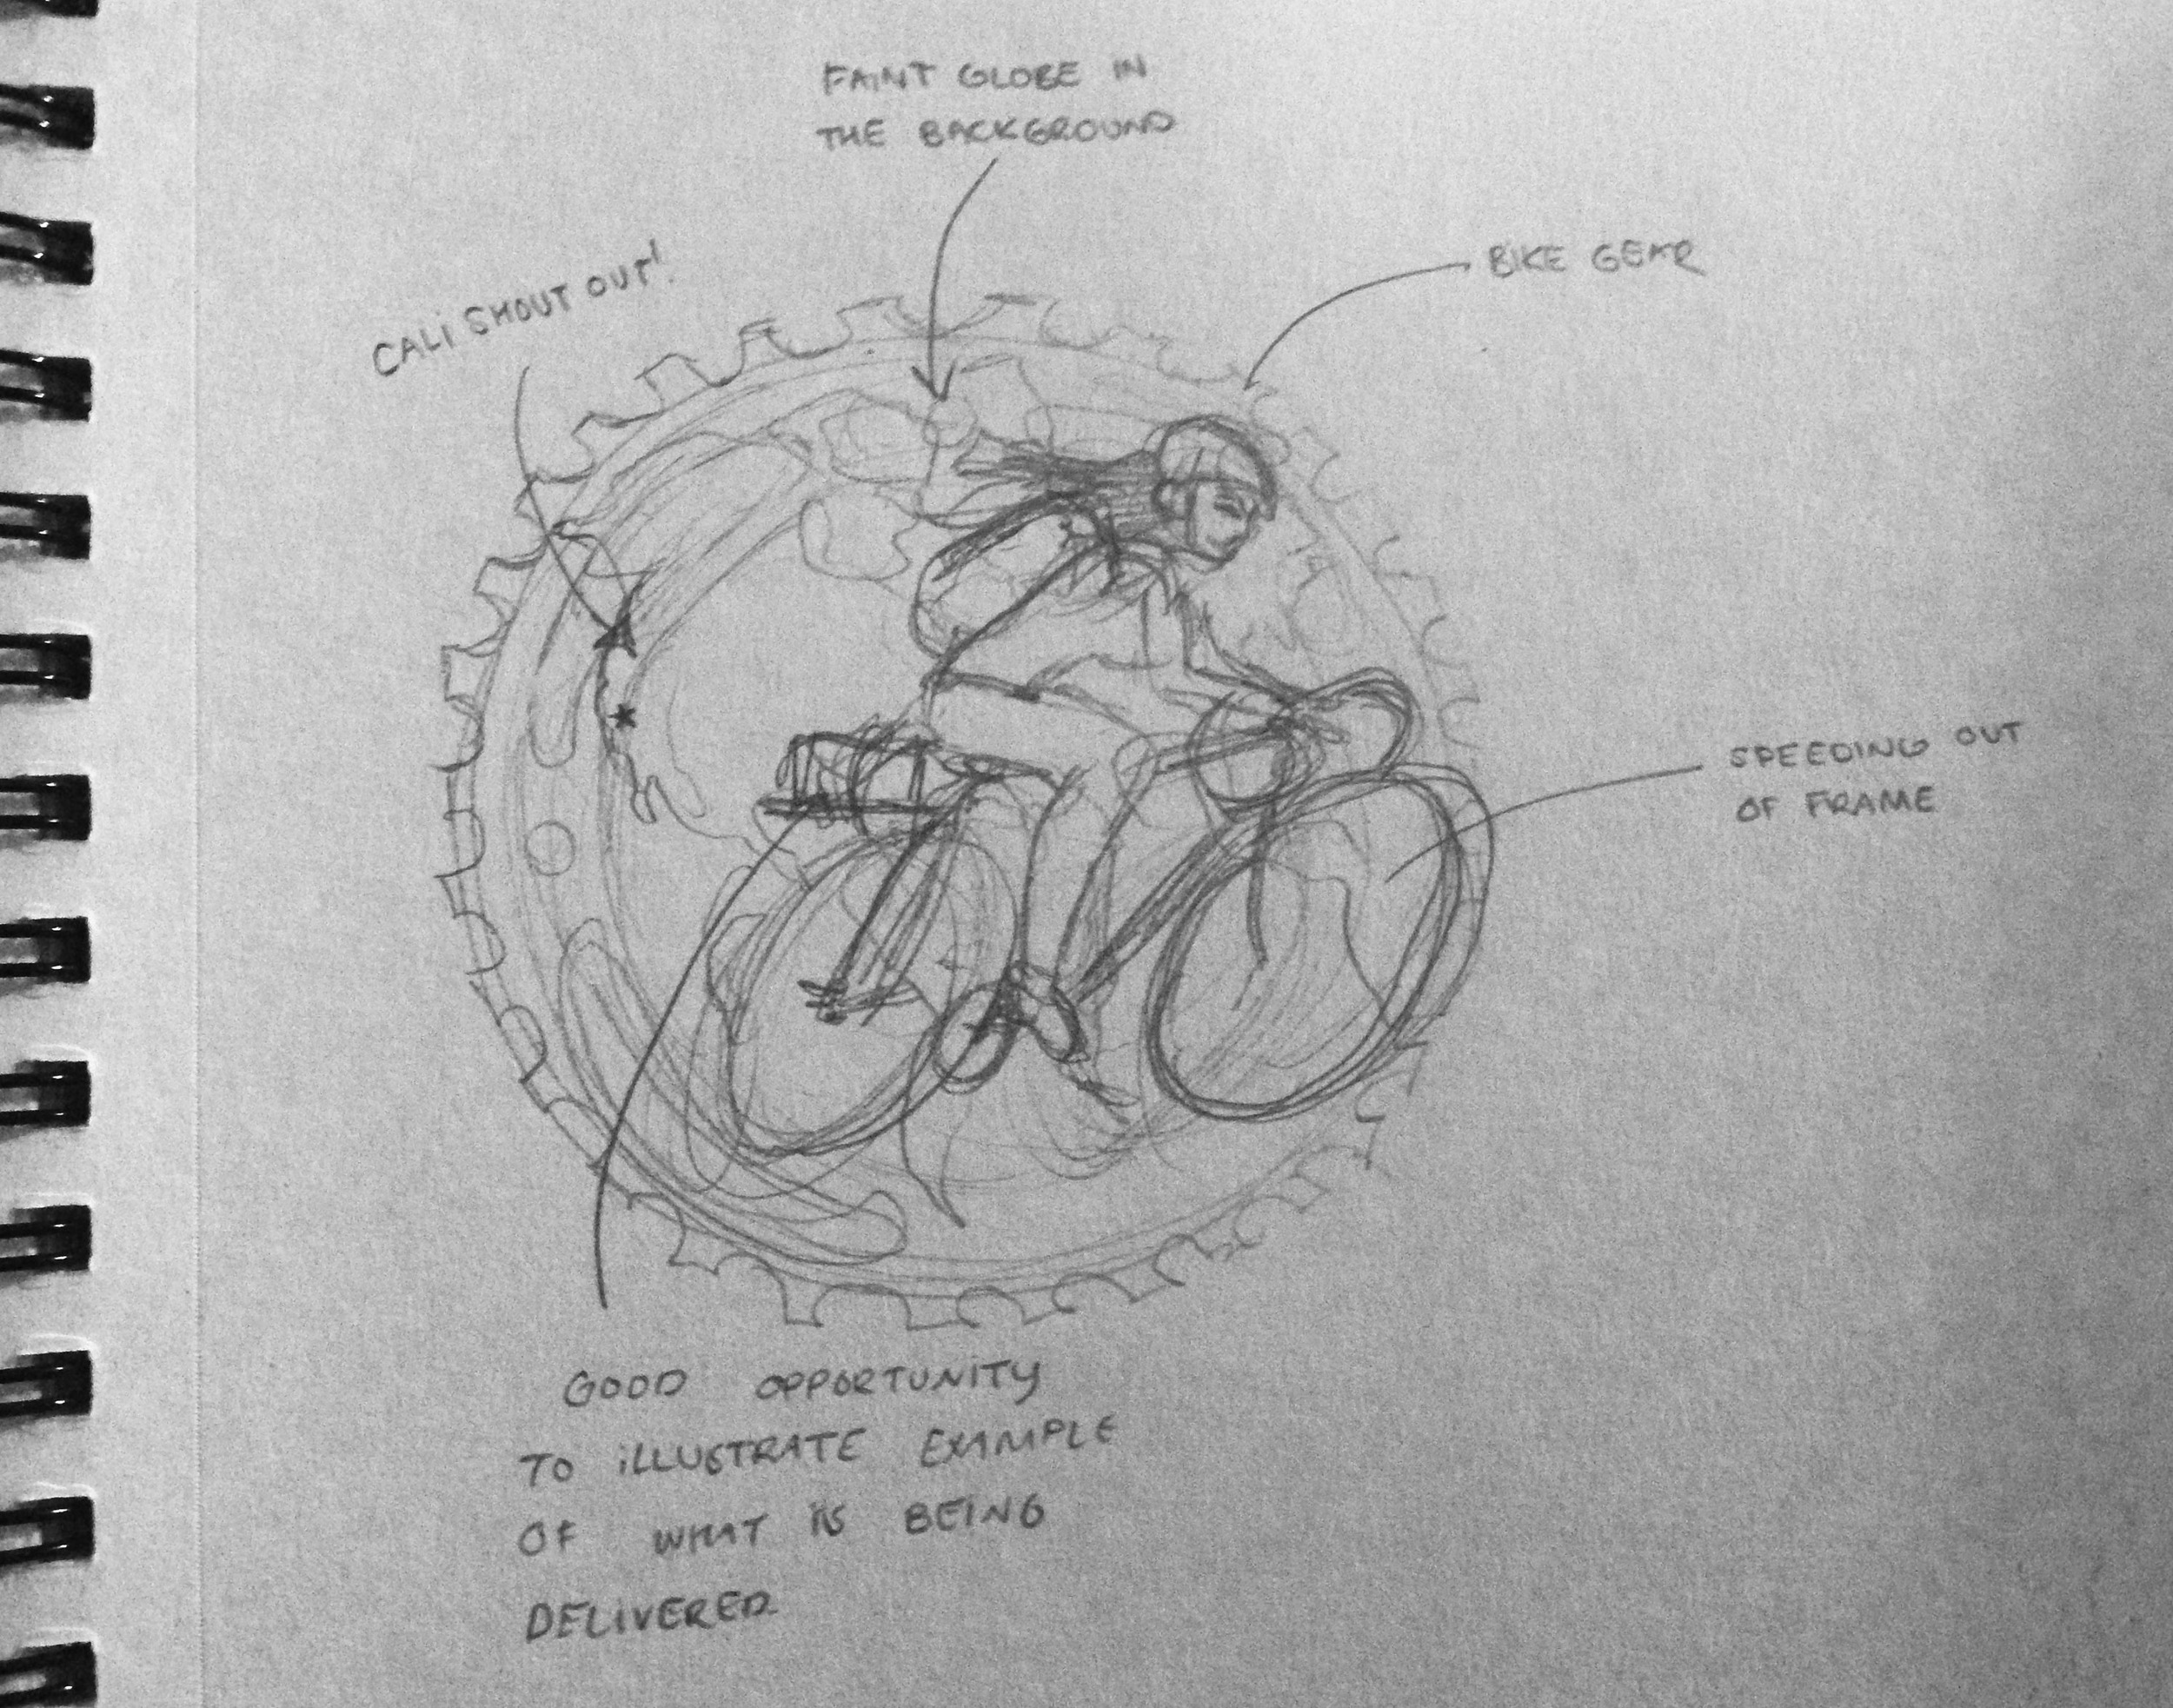 FAINT GLOBE IN
THE BACKGROUND
CALI SHOUT OUT!
BIKE GEAR
SPEEDING OUT
OF FRAME
GOOD OPPORTUNITY
TO iLLUSTRATE EXAMPLE
OF WHAT IS BEING
DELIVERED